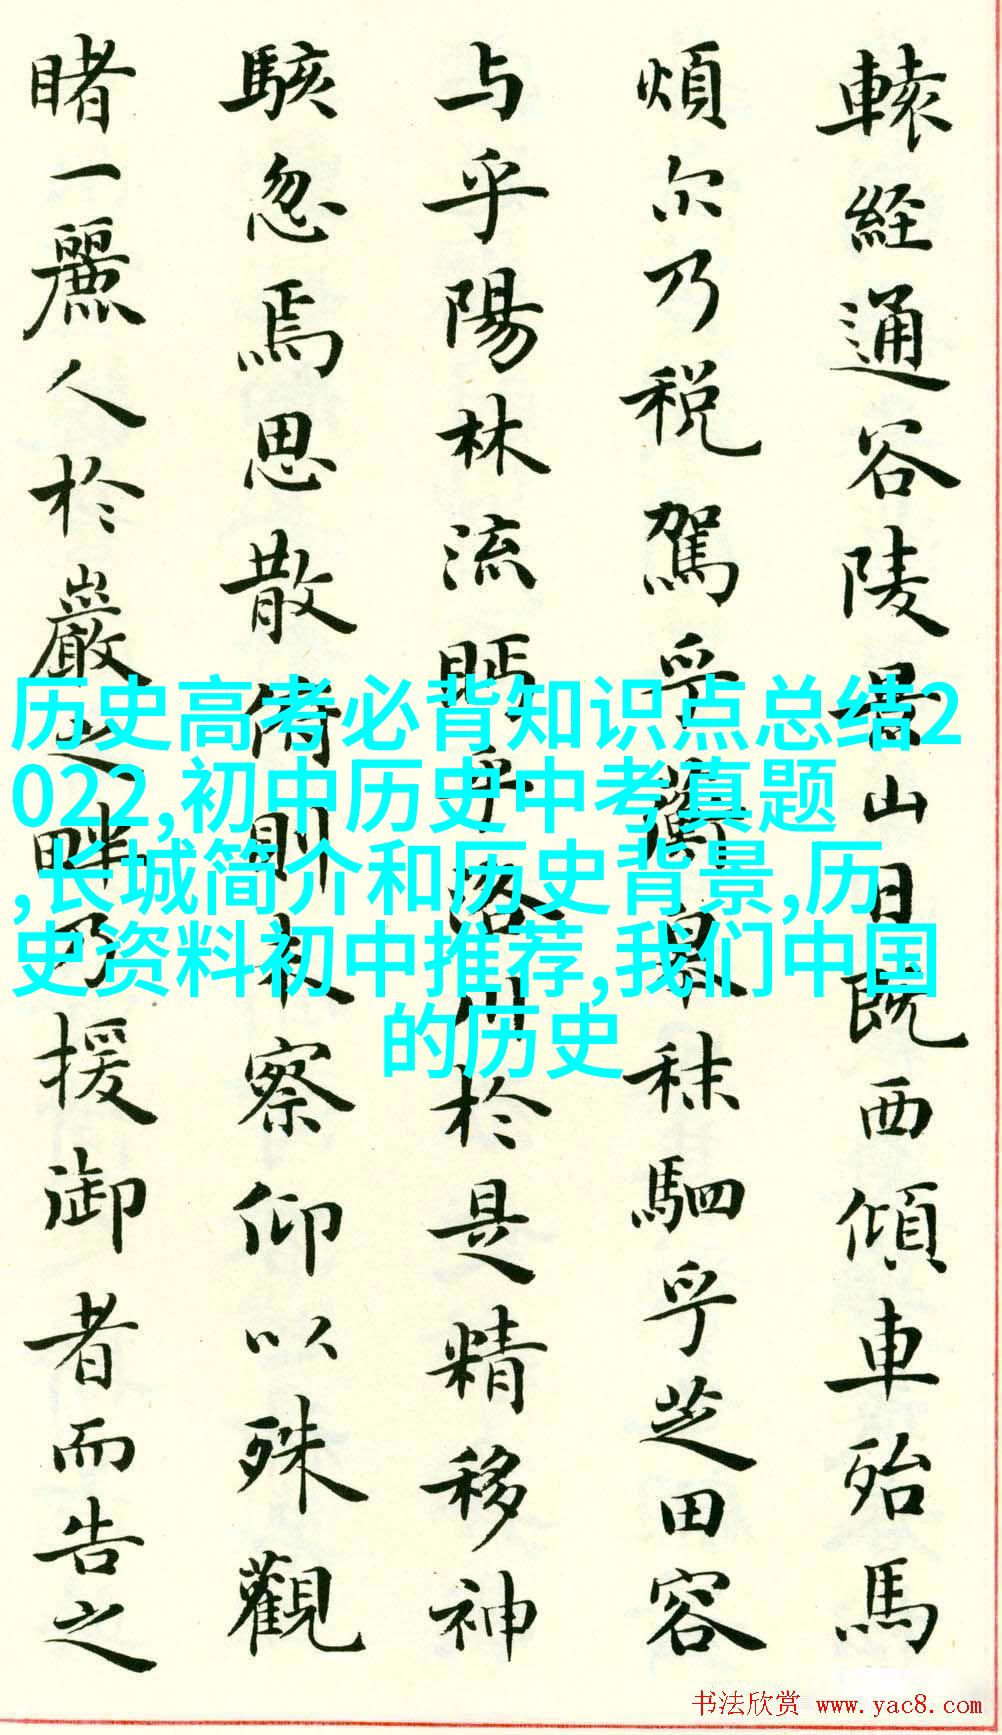 轅経通谷陵景山日既西傾車殆馬
煩尔乃税駕乎蘅皋秣駟乎芝田容
与乎陽林流眄乎洛川於是精移神
駭忽焉思散俯則未察仰以殊觀
睹一麗人於巖之畔乃援御者而告之
历史高考必背知识点总结2
022,初中历史中考真题
,长城简介和历史背景,历
史资料初中推荐,我们中国
的历史
书法欣赏 www.yac8.com